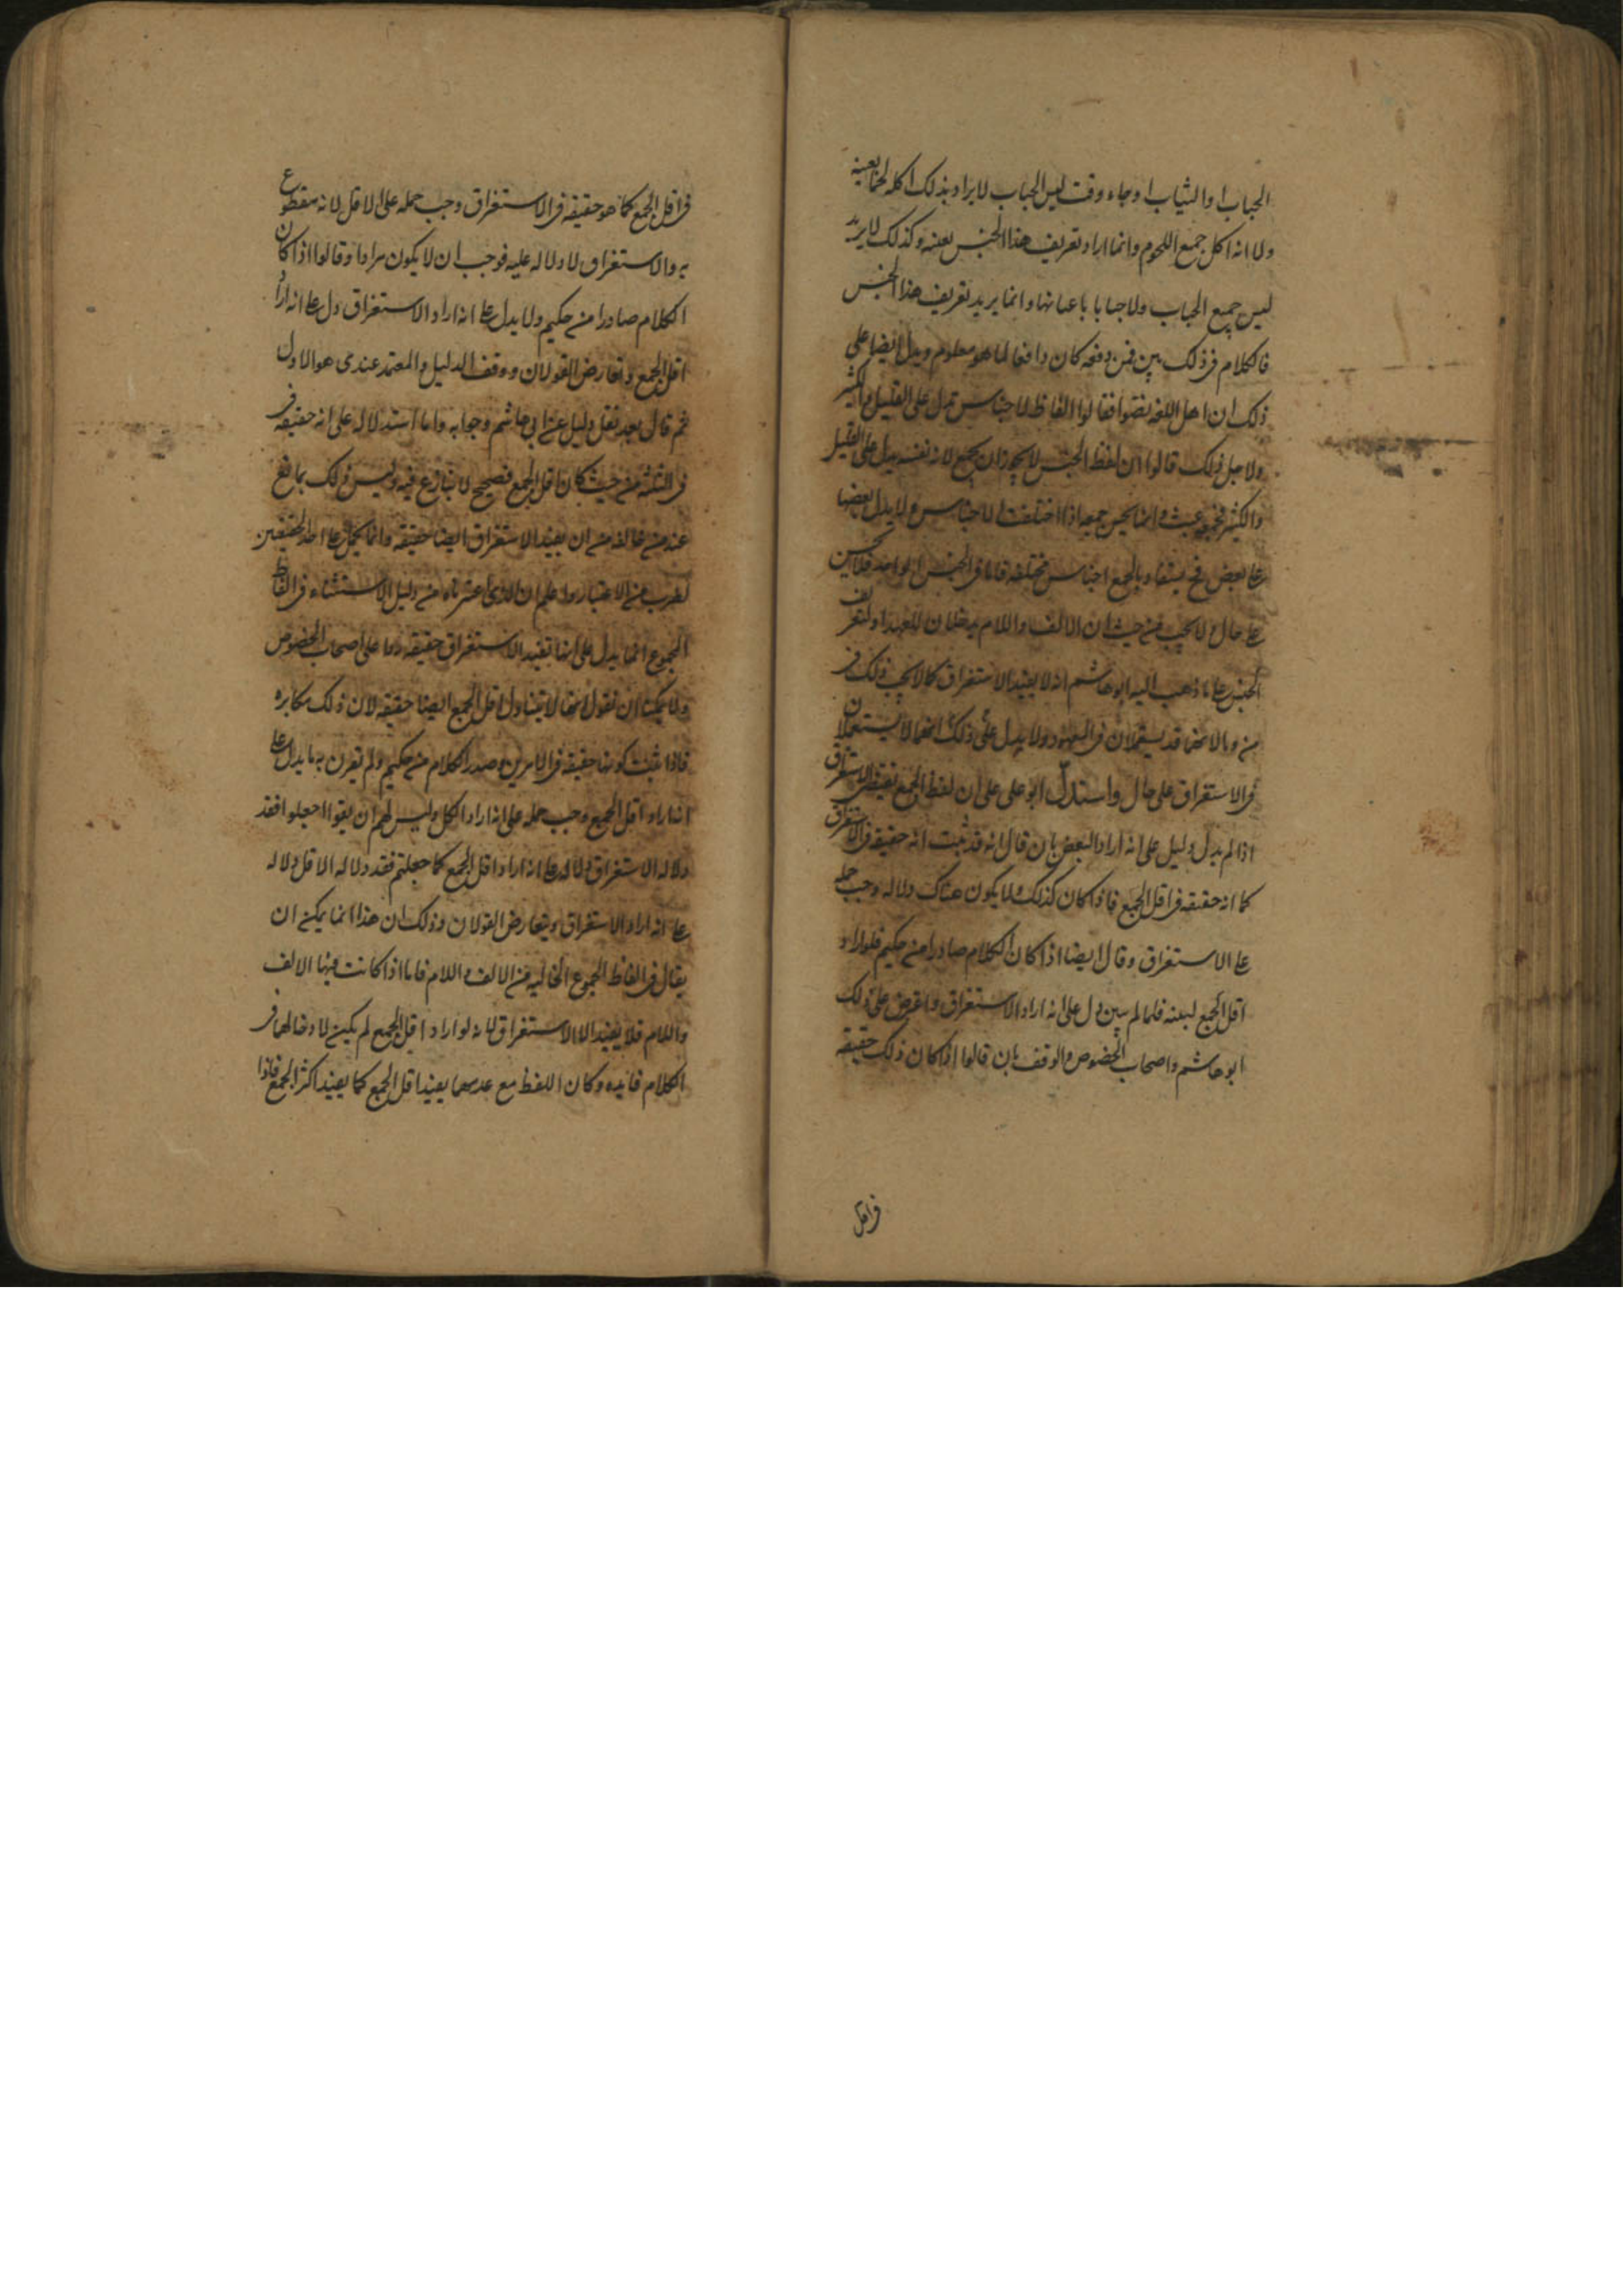 الجباب او الثياب او جاء وقت لبس الجباب لا يراد بذلك اكله لحما بعينه
ولا انه اكل جميع اللحوم وانما اراد تعريف هذا الجنس بعينه وكذلك لا يريد
لبس جميع الجباب ولا جبابا باعيانها وانما يريد تعريف هذا الجنس
فالكلام فى ذلك بين فمن دفعه كان دافعا لما هو معلوم ويدل ايضا على
ذلك ان اهل اللغه نصوا فقالوا الفاظ الاجناس تدل على القليل والكثير
ولاجل ذلك قالوا ان لفظ الجنس لا يجوز ان يجمع لانه نفسه يدل على القليل
والكثير فجمعه عبث وانما يحسن جمعه اذا اختلفت الاجناس ولا يدل بعضها
على بعض فح يستفاد بالجمع اجناس مختلفه فاما فى الجنس الواحد فلا يحسن
على حال ولا يجب من حيث ان الالف واللام يدخلان للعهد او لتعريف
الجنس على ما ذهب اليه ابو هاشم انه لا يفيد الاستغراق كما لا يجب ذلك فى
من وما لانهما قد يستعملان فى المعهود ولا يدل على ذلك انهما لا يستعملان
فى الاستغراق على حال واستدل ابو على على ان لفظ الجمع يقتضى الاستغراق
اذا لم يدل دليل على انه اراد البعض بان قال انه قد ثبت انه حقيقه فى الاستغراق
كما انه حقيقه فى اقل الجمع فاذا كان كذلك ولا يكون هناك دلاله وجب حمله
على الاستغراق وقال ايضا اذا كان الكلام صادرا من حكيم فلو اراد
اقل الجمع لبينه فلما لم يبين دل على انه اراد الاستغراق واعترض على ذلك
ابو هاشم واصحاب الخصوص والوقف بان قالوا اذا كان ذلك حقيقه
فى اقل
فى اقل الجمع كما هو حقيقه فى الاستغراق وجب حمله على الاقل لانه مقطوع
به والاستغراق لا دلاله عليه فوجب ان لا يكون مرادا وقالوا اذا كان
الكلام صادرا من حكيم ولا يدل على انه اراد الاستغراق دل على انه اراد
اقل الجمع وتعارض القولان ووقف الدليل والمعتمد عندى هو الاول
ثم قال بعد نقل دليل عن ابى هاشم وجوابه واما استدلاله على انه حقيقه فى
فى الثلثه من حيث كان اقل الجمع فصحيح لا ينازع فيه وليس ذلك بمانع
عند من خالفه من ان يفيد الاستغراق ايضا حقيقه وانما يحمل على احد الحقيقتين
لضرب من الاعتبار واعلم ان الذى اعتبرناه من دليل الاستثناء فى الفاظ
الجموع انما يدل على انها تفيد الاستغراق حقيقه ردا على اصحاب الخصوص
ولا يمكننا ان نقول انها لا يتناول اقل الجمع ايضا حقيقه لان ذلك مكابره
فاذا ثبت كونها حقيقه فى الامرين وصدر الكلام من حكيم ولم تقرن به ما يدل على
انه اراد اقل الجمع وجب حمله على انه اراد الكل وليس لهم ان يقولوا اجعلوا فقد
دلاله الاستغراق دلاله على انه اراد اقل الجمع كما جعلتم فقد دلاله الاقل دلاله
على انه اراد الاستغراق ويتعارض القولان وذلك ان هذا انما يمكن ان
يقال فى الفاظ الجموع الخاليه من الالف واللام فاما اذا كانت فيها الالف
واللام فلا يفيد الا الاستغراق لانه لو اراد اقل الجمع لم يكن لادخالهما فى
الكلام فايده وكان اللفظ مع عدمهما يفيد اقل الجمع كما يفيد اكثر الجمع فاذا